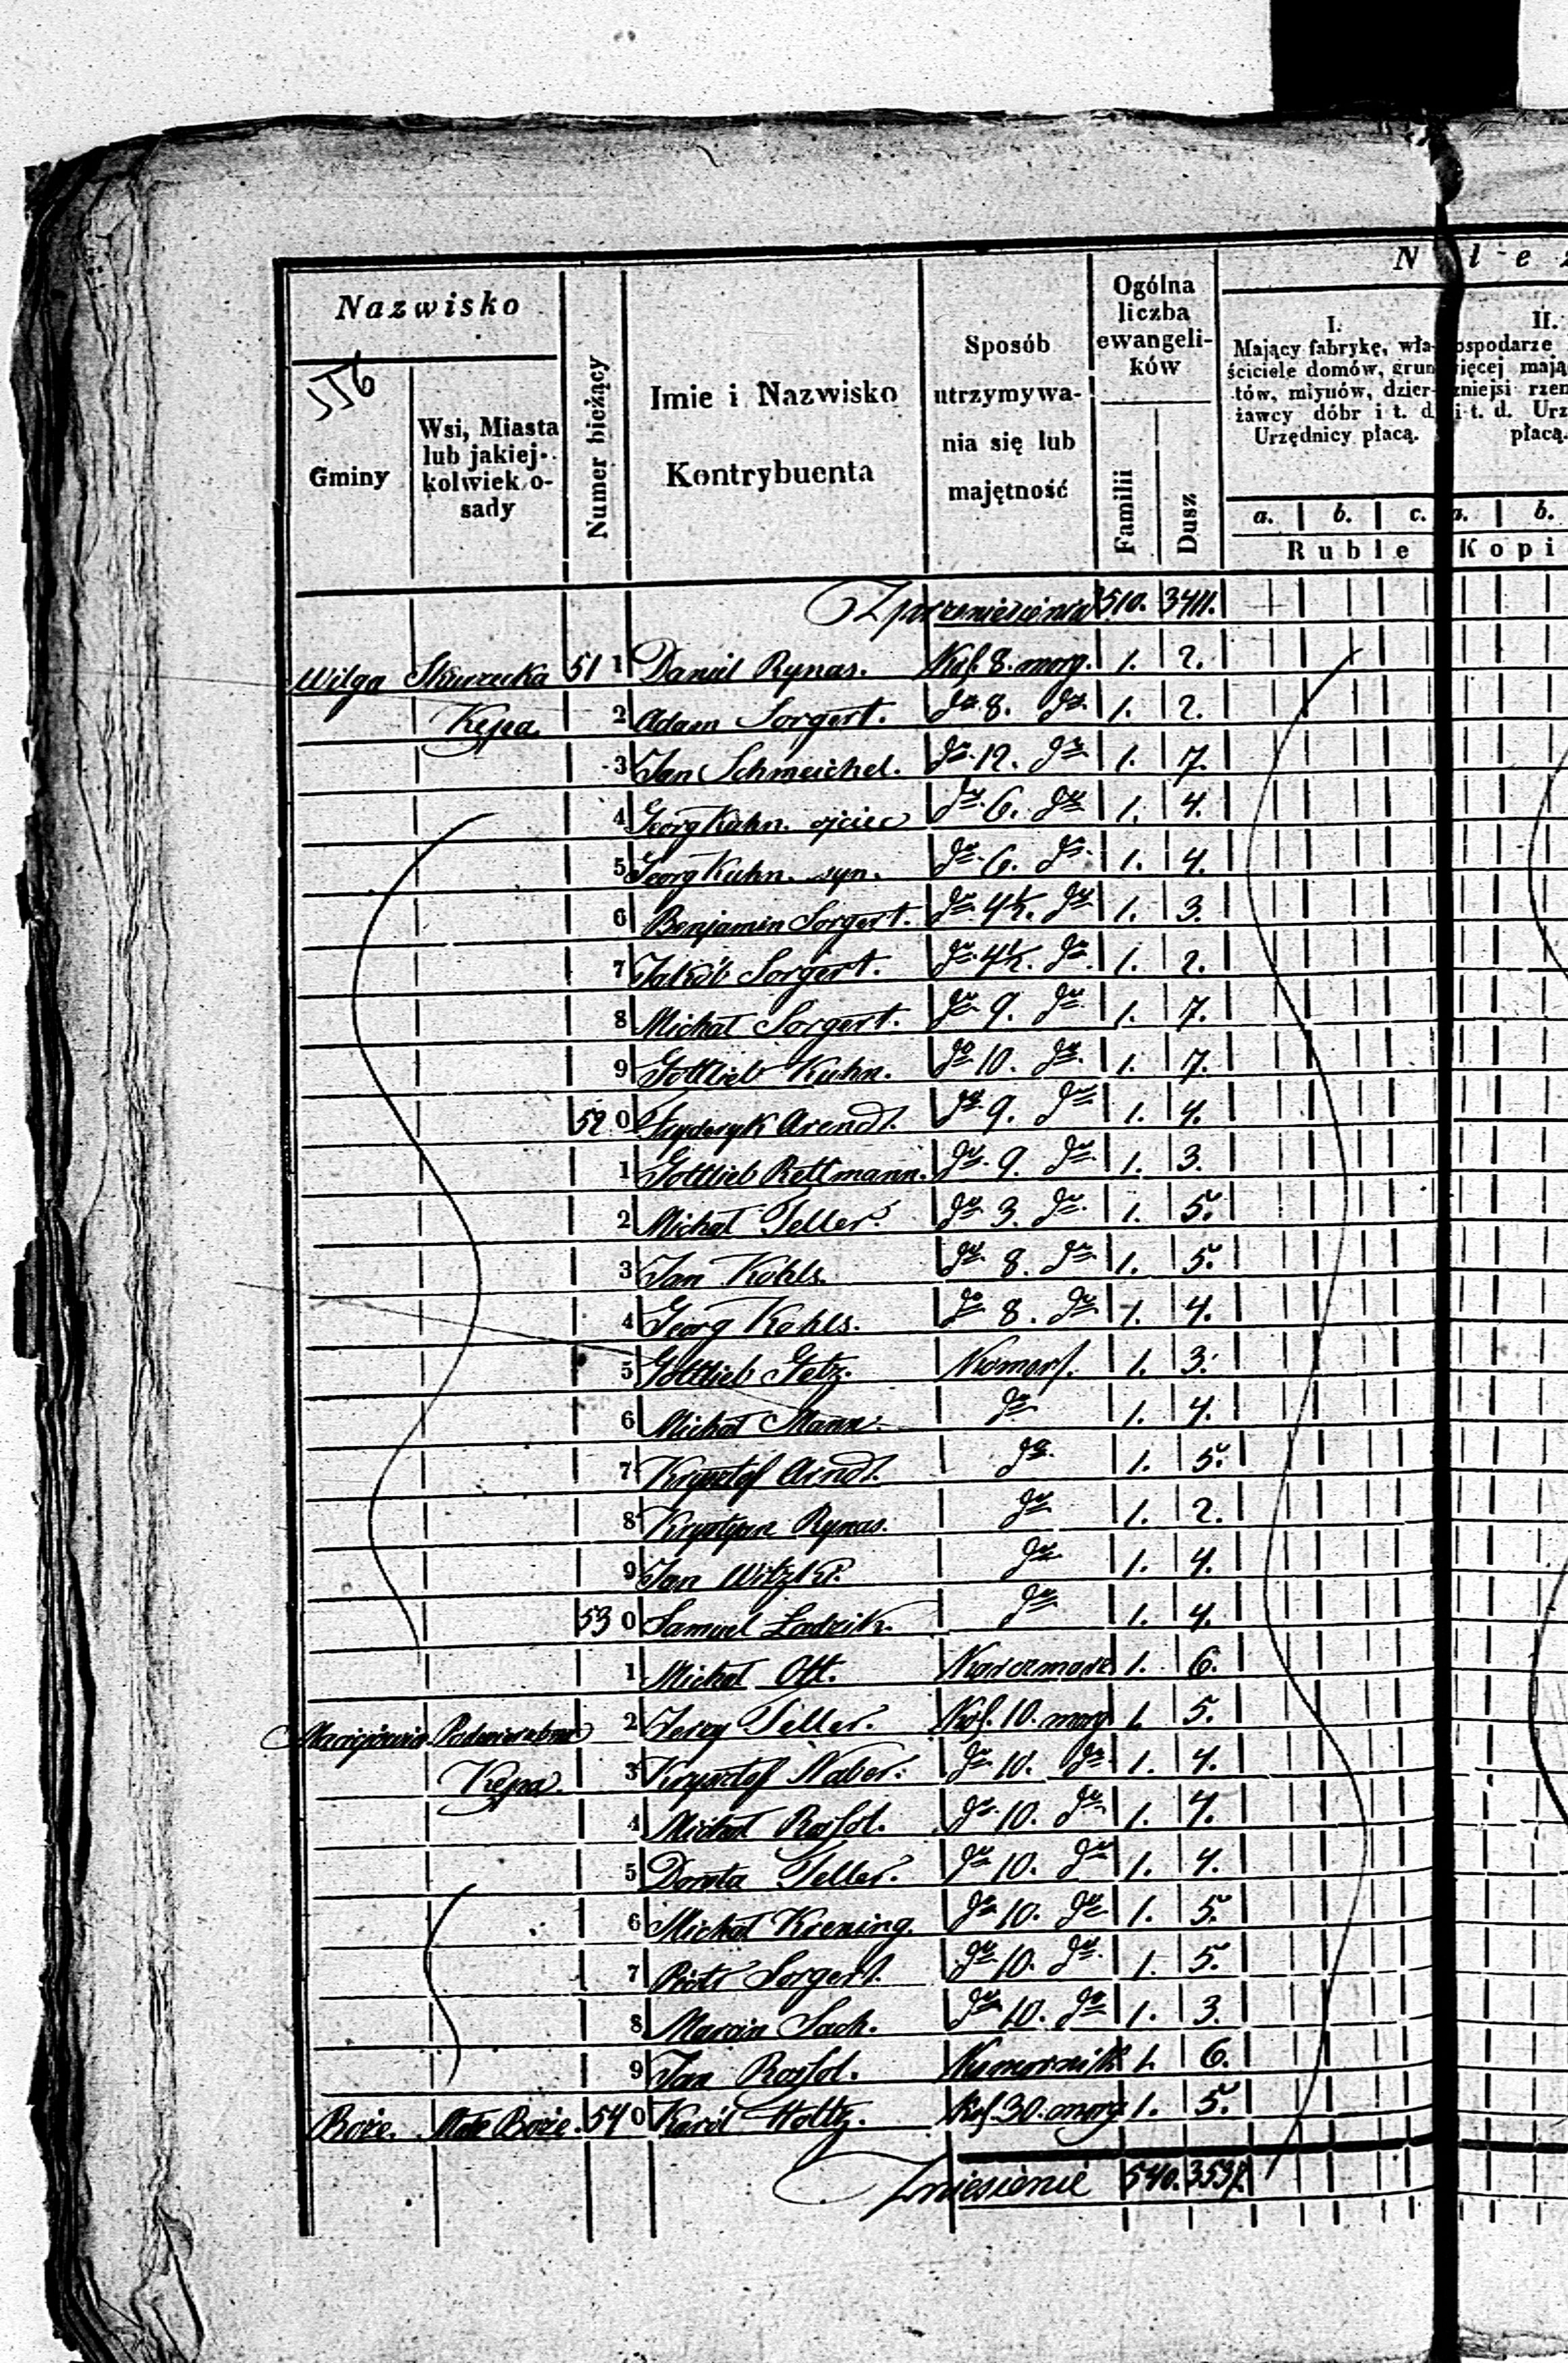 Nazwisko
556
Gminy
Wsi, Miasta
lub jakiej-
kolwiek o-
sady
Numer bieżący
Imie i Nazwisko
Kontrybuenta
Sposób
utrzymywa-
nia się lub
majętność
Ogólna
liczba
ewangeli-
ków
Familii
Dusz
N a l e ż
I.
Mający fabrykę, wła-
ściciele domów, grun
tów, młynów, dzier-
żawcy dóbr i t. d.
Urzędnicy płacą.
II.
ospodarze
ięcej mają
zniejsi rzem
i t. d. Urz
płacą.
a. b. c. a. b.
Ruble Kopi
Z przeniesienia 510. 3411.
Wilga Skurzecka 51 1 Daniel Rynas. Kol. 8. morg. 1. 2.
Kępa 2 Adam Sorgert. do 8. do 1. 2.
3 Jan Schmeichel. do 12. do 1. 7.
4 Georg Kuhn. ojciec do 6. do 1. 4.
5 Georg Kuhn. syn. do 6. do 1. 4.
6 Benjamin Sorgert. do 4½. do 1. 3.
7 Jakób Sorgert. do 4½. do 1. 2.
8 Michał Sorgert. do 9. do 1. 7.
9 Gottlieb Kuhn. do 10. do 1. 7.
52 0 Fryderyk Arendt. do 9. do 1. 4.
1 Gottlieb Rettmann. do 9. do 1. 3.
2 Michał Teller. do 3. do 1. 5.
3 Jan Kohls. do 8. do 1. 5.
4 Georg Kohls. do 8. do 1. 4.
5 Gottlieb Getz. Komor. 1. 3.
6 Michał Mann. do 1. 4.
7 Krysztof Arndt. do 1. 5.
8 Krystyna Rynas. do 1. 2.
9 Jan Witzki. do 1. 4.
53 0 Samuel Łodzik. do 1. 4.
1 Michał Ott. Karczmarz 1. 6.
2 Jerzy Teller. Kol. 10. morg 1. 5.
Kępa. 3 Krysztof Naber. do 10. do 1. 4.
4 Michał do 10. do 1. 4.
5 Dorota Teller. do 10. do 1. 4.
6 Michał Krening. do 10. do 1. 5.
7 Piotr Sorgert. do 10. do 1. 5.
8 Marcin Sach. do 10. do 1. 3.
9 Jan Komornik 1. 6.
Boże. Małe Boże. 54 0 Karól Holtz. Kol. 30. morg 1. 5.
Zniesienie 540. 3531.